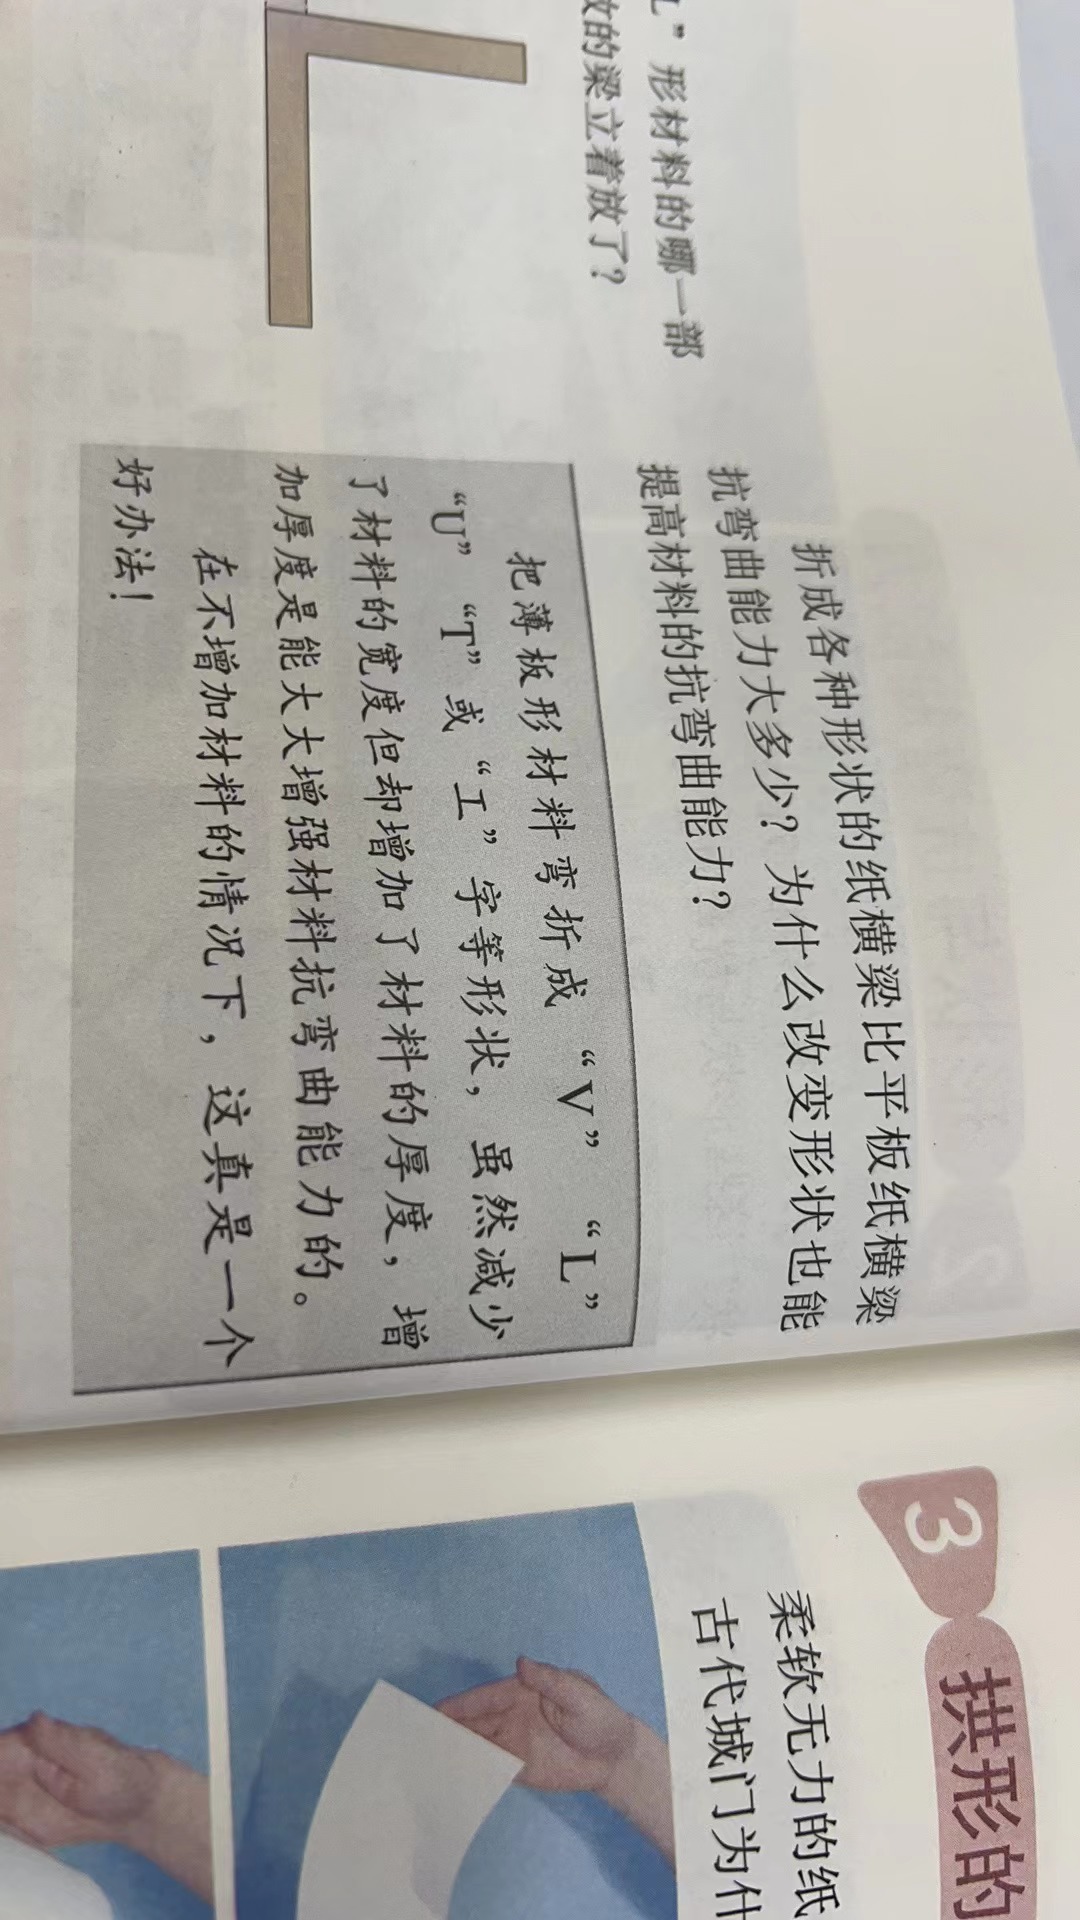 L”形材料的哪一部
的梁立着放了？
折成各种形状的纸横梁比平板纸横梁
抗弯曲能力大多少？为什么改变形状也能
提高材料的抗弯曲能力？
把薄板形材料弯折成“V”“L”
“U”“T”或“工”字等形状，虽然减少
了材料的宽度但却增加了材料的厚度，增
加厚度是能大大增强材料抗弯曲能力的。
在不增加材料的情况下，这真是一个
好办法！
3
拱形的
柔软无力的纸
古代城门为什